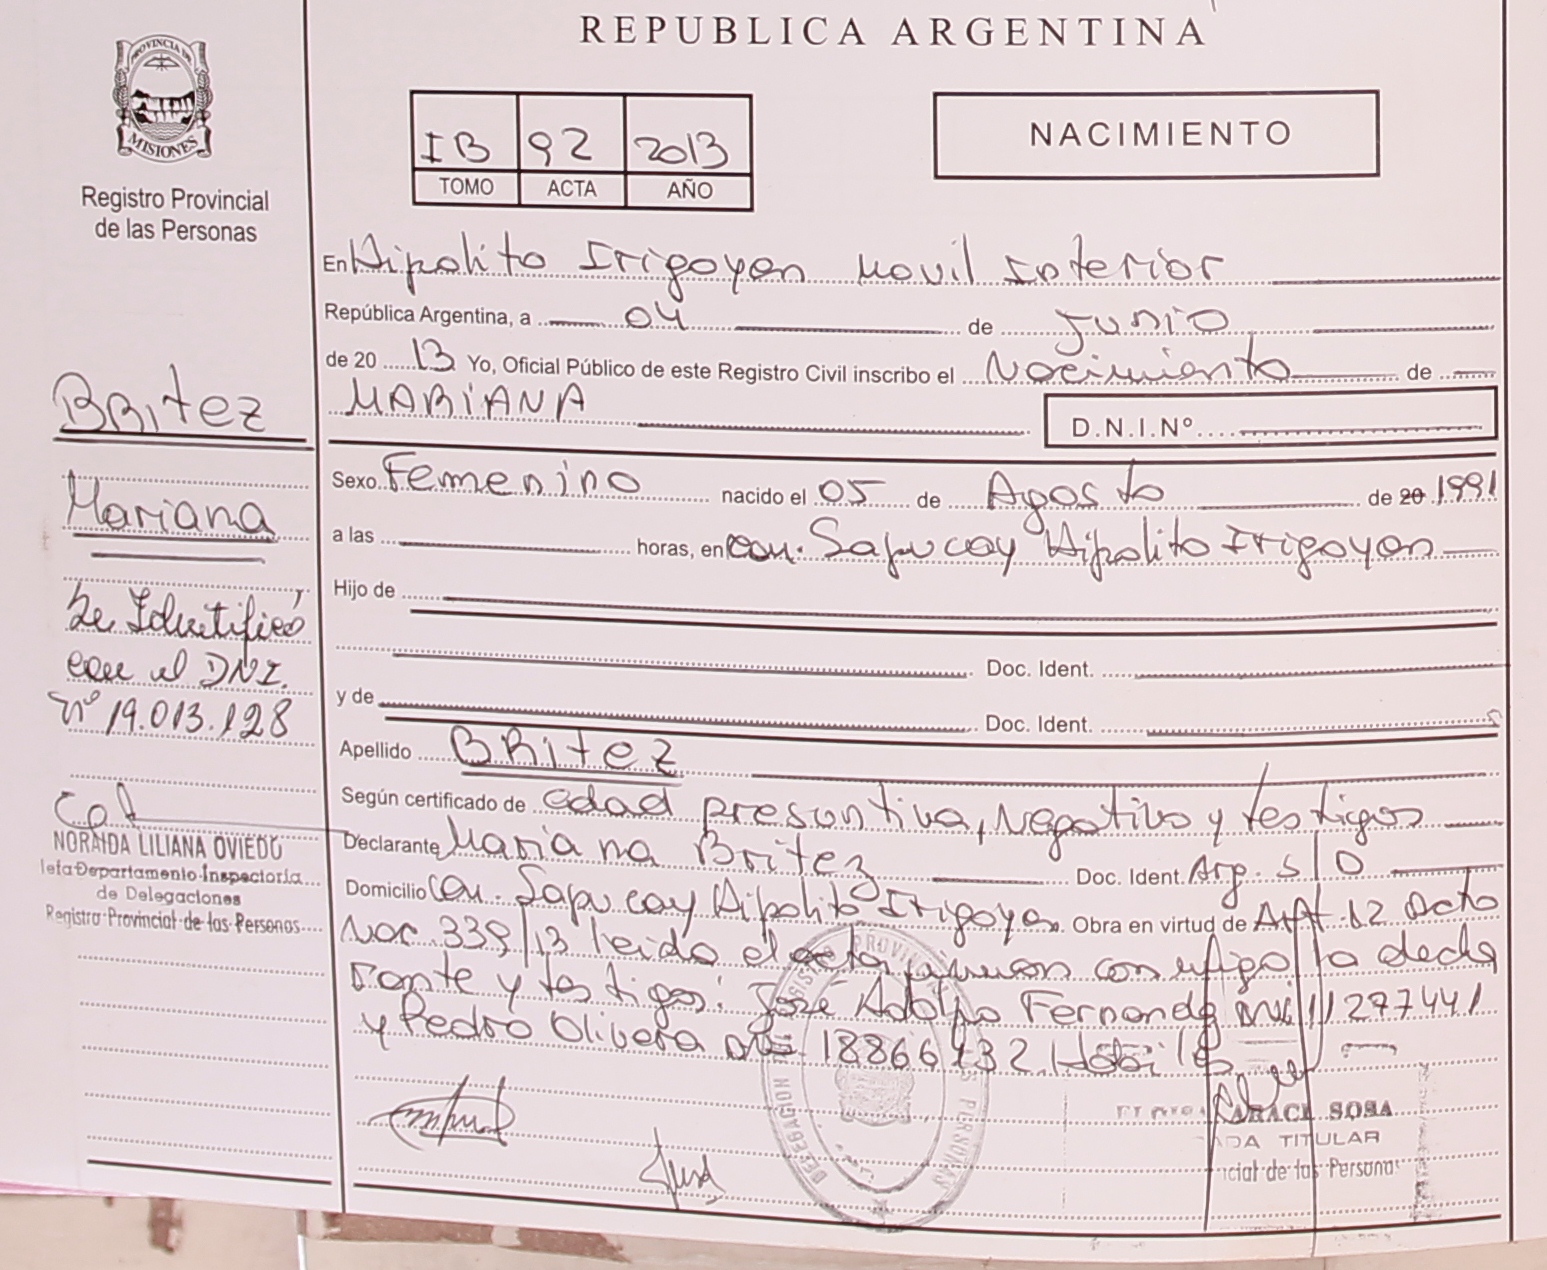 REPUBLICA ARGENTINA
PROVINCIA DE
MISIONES
Registro Provincial
de las Personas
IB 92 2013
TOMO ACTA AÑO
NACIMIENTO
En Hipolito Irigoyen Movil Interior
República Argentina, a 04 de Junio
de 20 13 Yo, Oficial Público de este Registro Civil inscribo el Nacimiento de
MARIANA
D.N.I.Nº
Sexo Femenino nacido el 05 de Agosto de 20 1991
a las horas, en con. Sapucay Hipolito Irigoyen
Hijo de
Doc. Ident.
y de Doc. Ident.
Apellido BRitez
Según certificado de edad presuntiva, Negativo y testigos
Declarante Mariana Britez Doc. Ident. Arg. S/D
Domicilio con. Sapucay Hipolito Irigoyen Obra en virtud de Art. 12 Dcto
Nac 339/13 leido el acta firman conmigo la decla
rante y testigos: José Adolfo Fernandez 11277441
y Pedro Olivera 18866132 Habiles
BRitez
Mariana
Se Identificó
con el DNI.
nº 19.013.128
NORAIDA LILIANA OVIEDO
Jefa Departamento Inspectoria
de Delegaciones
Registro Provincial de las Personas
DELEGACION
PERSONAS
ARACI SOSA
ADA TITULAR
ncial de las Personas